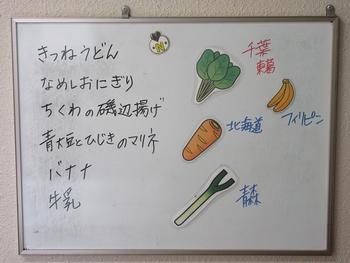 きつねうどん
なめしおにぎり
ちくわの磯辺揚げ
青大豆とひじきのマリネ
バナナ
牛乳
千葉
東葛
北海道
フィリピン
青森